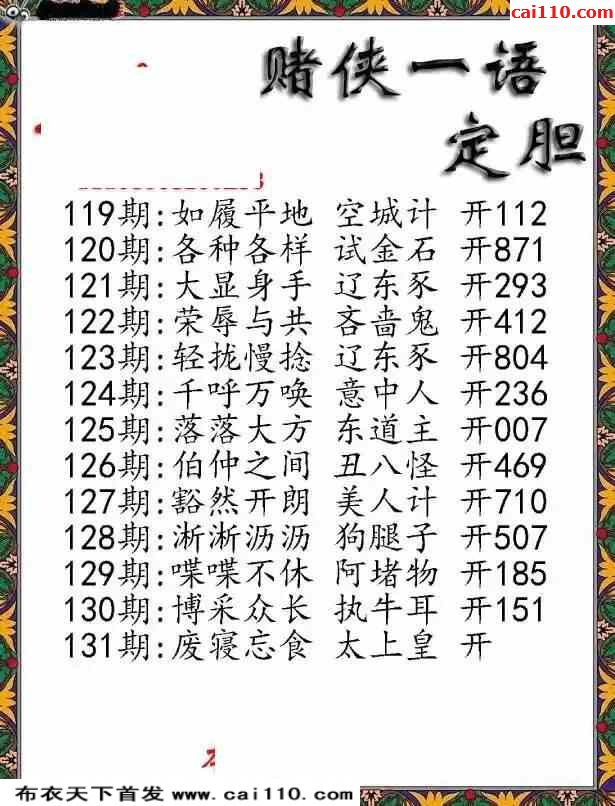 彩吧助手
cai110.com
赌侠一语
定胆
119期:如履平地 空城计 开112
120期:各种各样 试金石 开871
121期:大显身手 辽东豕 开293
122期:荣辱与共 吝啬鬼 开412
123期:轻拢慢捻 辽东豕 开804
124期:千呼万唤 意中人 开236
125期:落落大方 东道主 开007
126期:伯仲之间 丑八怪 开469
127期:豁然开朗 美人计 开710
128期:淅淅沥沥 狗腿子 开507
129期:喋喋不休 阿堵物 开185
130期:博采众长 执牛耳 开151
131期:废寝忘食 太上皇 开
布衣天下首发 www.cai110.com